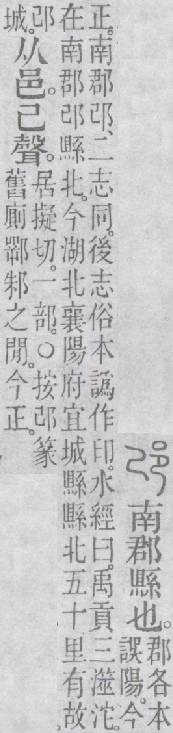 邔南郡縣也。
郡各本
誤陽。今
正。南郡邔、二志同。後志俗本譌作印。水經曰。禹貢三澨沱
在南郡邔縣北。今湖北襄陽府宜城縣縣北五十里有故
邔
城。
从邑。己聲。
居擬切。一部。○按邔篆
舊廁鄂邾之閒。今正。